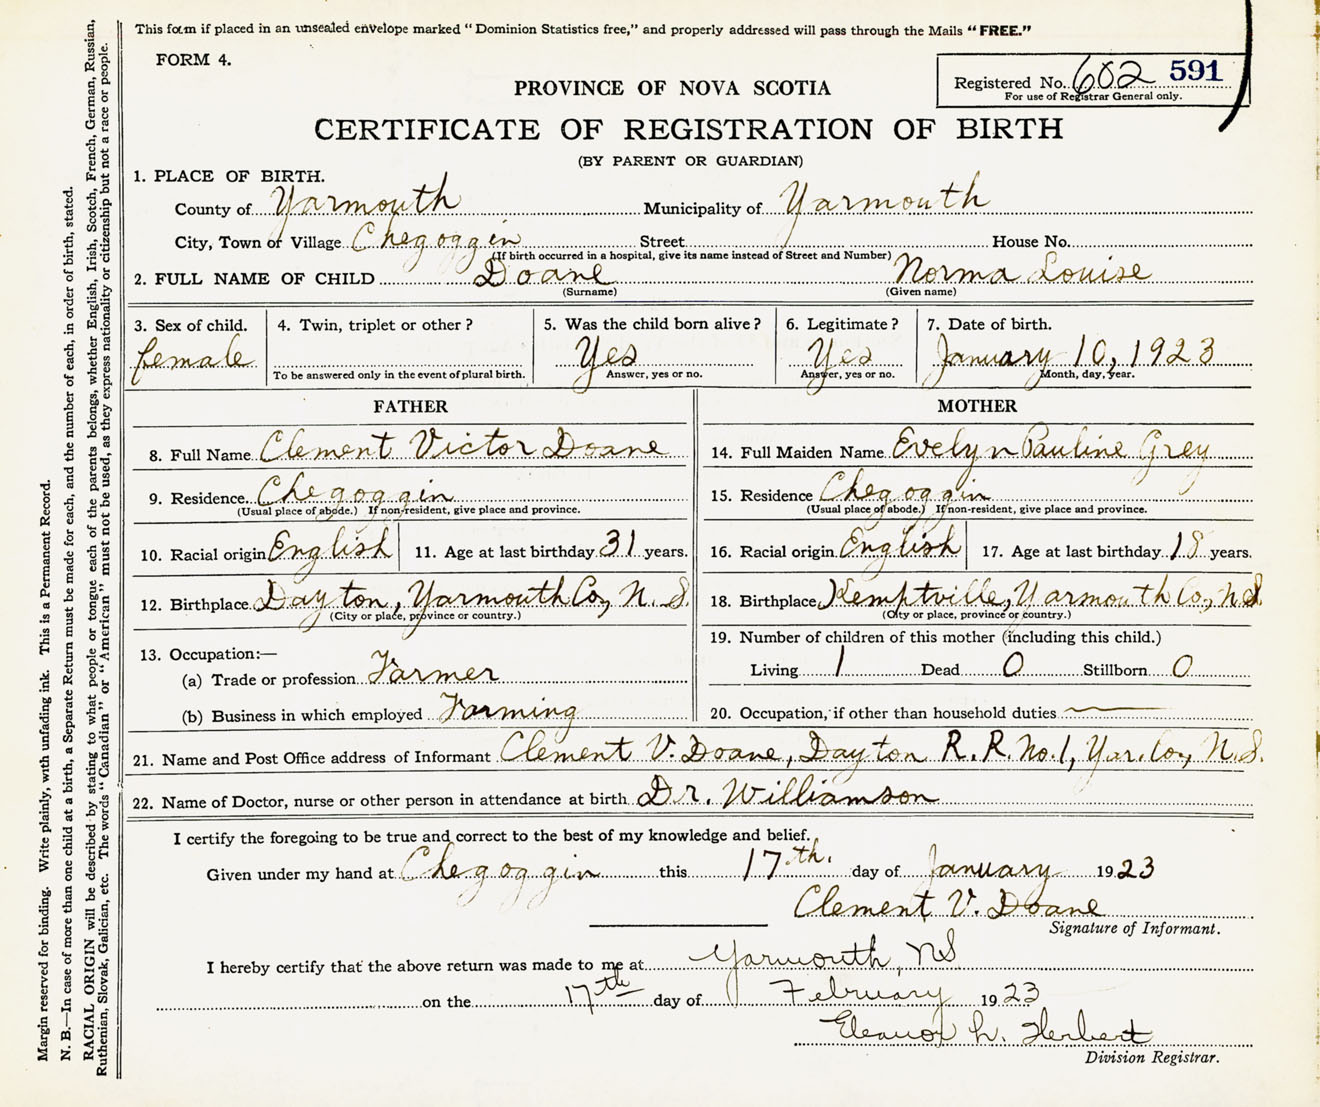 This form if placed in an unsealed envelope marked "Dominion Statistics free," and properly addressed will pass through the Mails "FREE."
FORM 4.
Registered No. 602 591
For use of Registrar General only.
PROVINCE OF NOVA SCOTIA
CERTIFICATE OF REGISTRATION OF BIRTH
(BY PARENT OR GUARDIAN)
1. PLACE OF BIRTH.
County of Yarmouth Municipality of Yarmouth
City, Town or Village Chegoggin Street House No.
(If birth occurred in a hospital, give its name instead of Street and Number)
2. FULL NAME OF CHILD Doane Norma Louise
(Surname) (Given name)
3. Sex of child. 4. Twin, triplet or other? 5. Was the child born alive? 6. Legitimate? 7. Date of birth.
female Yes Yes January 10, 1923
To be answered only in the event of plural birth. Answer, yes or no. Answer, yes or no. Month, day, year.
FATHER MOTHER
8. Full Name Clement Victor Doane 14. Full Maiden Name Evelyn Pauline Grey
9. Residence. Chegoggin 15. Residence Chegoggin
(Usual place of abode.) If non-resident, give place and province. (Usual place of abode.) If non-resident, give place and province.
10. Racial origin English 11. Age at last birthday 31 years. 16. Racial origin English 17. Age at last birthday 18 years.
12. Birthplace Dayton, Yarmouth Co, N.S. 18. Birthplace Kemptville, Yarmouth Co, N.S.
(City or place, province or country.) (City or place, province or country.)
13. Occupation:—
(a) Trade or profession Farmer
(b) Business in which employed Farming
19. Number of children of this mother (including this child.)
Living 1 Dead 0 Stillborn 0
20. Occupation, if other than household duties —
21. Name and Post Office address of Informant Clement V. Doane, Dayton R.R. No.1, Yar. Co, N.S.
22. Name of Doctor, nurse or other person in attendance at birth Dr. Williamson
I certify the foregoing to be true and correct to the best of my knowledge and belief.
Given under my hand at Chegoggin this 17th. day of January 1923
Clement V. Doane
Signature of Informant.
I hereby certify that the above return was made to me at Yarmouth, NS
on the 17th day of February 1923
Eleanor L. Herbert
Division Registrar.
Margin reserved for binding. Write plainly, with unfading ink. This is a Permanent Record.
N. B.—In case of more than one child at a birth, a Separate Return must be made for each, and the number of each, in order of birth, stated.
RACIAL ORIGIN will be described by stating to what people or tongue each of the parents belongs, whether English, Irish, Scotch, French, German, Russian,
Ruthenian, Slovak, Galician, etc. The words "Canadian" or "American" must not be used, as they express nationality or citizenship but not a race or people.